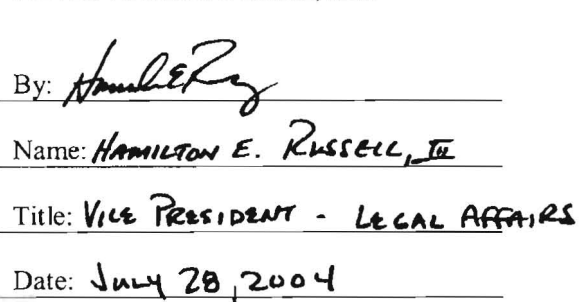 By:
Name: HAMILTON E. RUSSELL, III
Title: VICE PRESIDENT - LEGAL AFFAIRS
Date: JULY 28, 2004